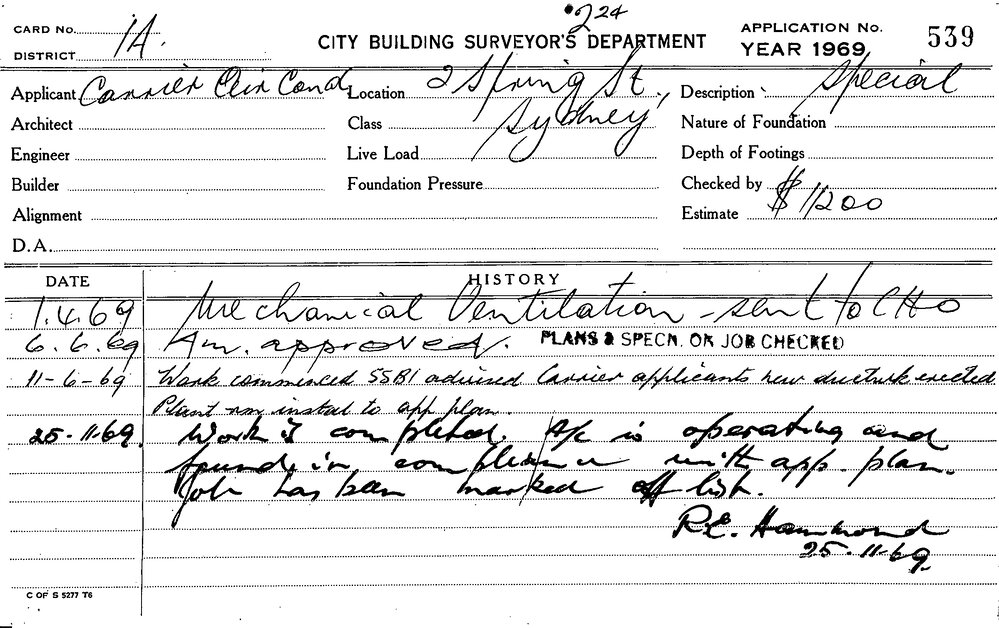 224
CARD No.
DISTRICT 1A.
CITY BUILDING SURVEYOR'S DEPARTMENT
APPLICATION No. 539
YEAR 1969
Applicant Carrier Air Cond. Location 2 Spring St., Description Special
Architect Class Sydney Nature of Foundation
Engineer Live Load Depth of Footings
Builder Foundation Pressure Checked by
Alignment Estimate $11200
D.A.
DATE HISTORY
1.4.69 Mechanical Ventilation - sent to CHO
6.6.69 Am. approved. PLANS & SPECN. OK JOB CHECKED
11-6-69 Work commenced SSBI advised Carrier applicants new ductwk erected
Plant rm instal to app plan.
25.11.69. Work is completed. A/c is operating and
found in compliance with app. plan.
Job has been marked off list.
R.E. Hammond
25.11.69.
C OF S 5277 T6